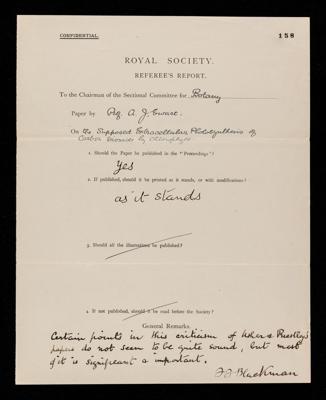 CONFIDENTIAL.
158
ROYAL SOCIETY.
REFEREE'S REPORT.
To the Chairman of the Sectional Committee for Botany
Paper by Prof. A. J. Ewart.
On the Supposed Extracellular Photosynthesis of
Carbon Dioxide by Chlorophyll
1. Should the Paper be published in the "Proceedings"?
Yes
2. If published, should it be printed as it stands, or with modifications?
as it stands
3. Should all the illustrations be published?
4. If not published, should it be read before the Society?
General Remarks.
Certain points in this criticism of Usher & Priestley's
papers do not seem to be quite sound, but most
of it is significant & important.
F F Blackman